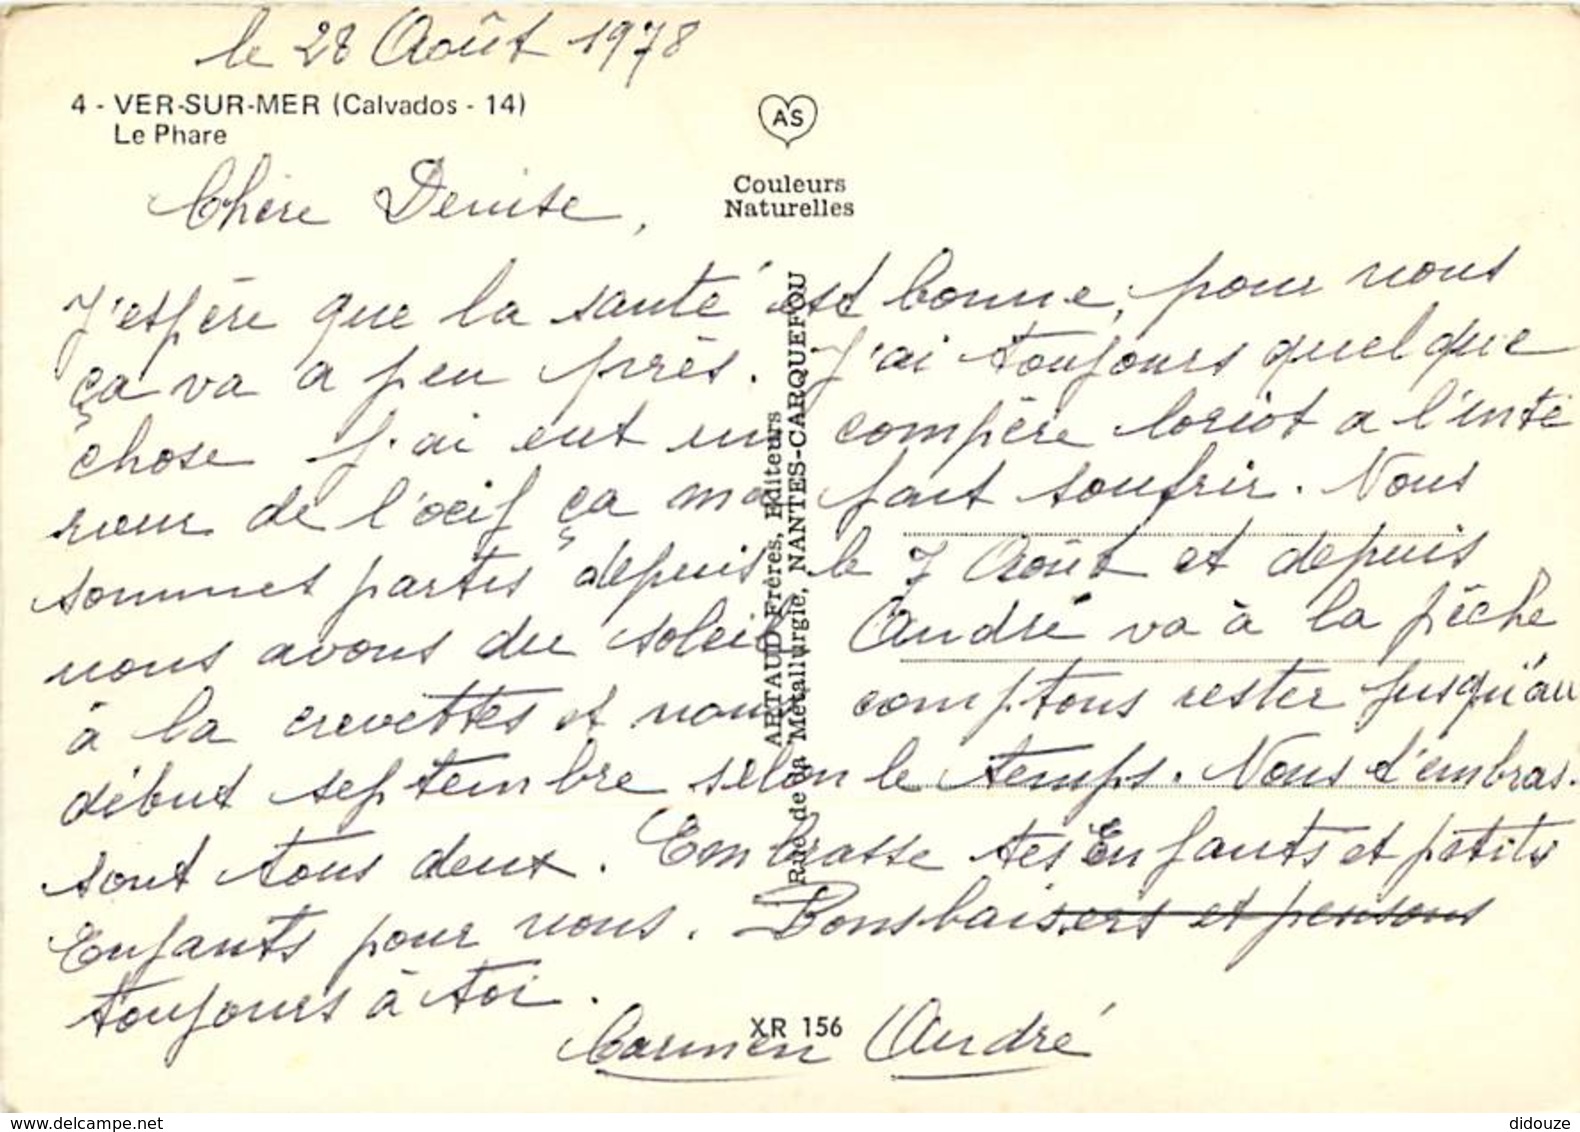 le 28 Août 1978
4 - VER-SUR-MER (Calvados - 14)
Le Phare
AS
Couleurs
Naturelles
Chère Denise,
J'espère que la santé est bonne, pour nous
ça va a peu près. J'ai toujours quelque
chose j'ai eut un compère loriot a l'inté
rieur de l'oeil ça ma fait soufrir. Nous
sommes partis depuis le 7 Août et depuis
nous avons du soleil André va à la pêche
à la crevettes et nous comptons rester jusqu'au
début septembre selon le temps. Nous t'embras.
sont tous deux. Embrasse tes Enfants et petits
Enfants pour nous. Bons baisers et pensons
toujours à toi.
Carmen André
ARTAUD Frères, Editeurs
Rue de la Métallurgie, NANTES-CARQUEFOU
XR 156
www.delcampe.net
didouze